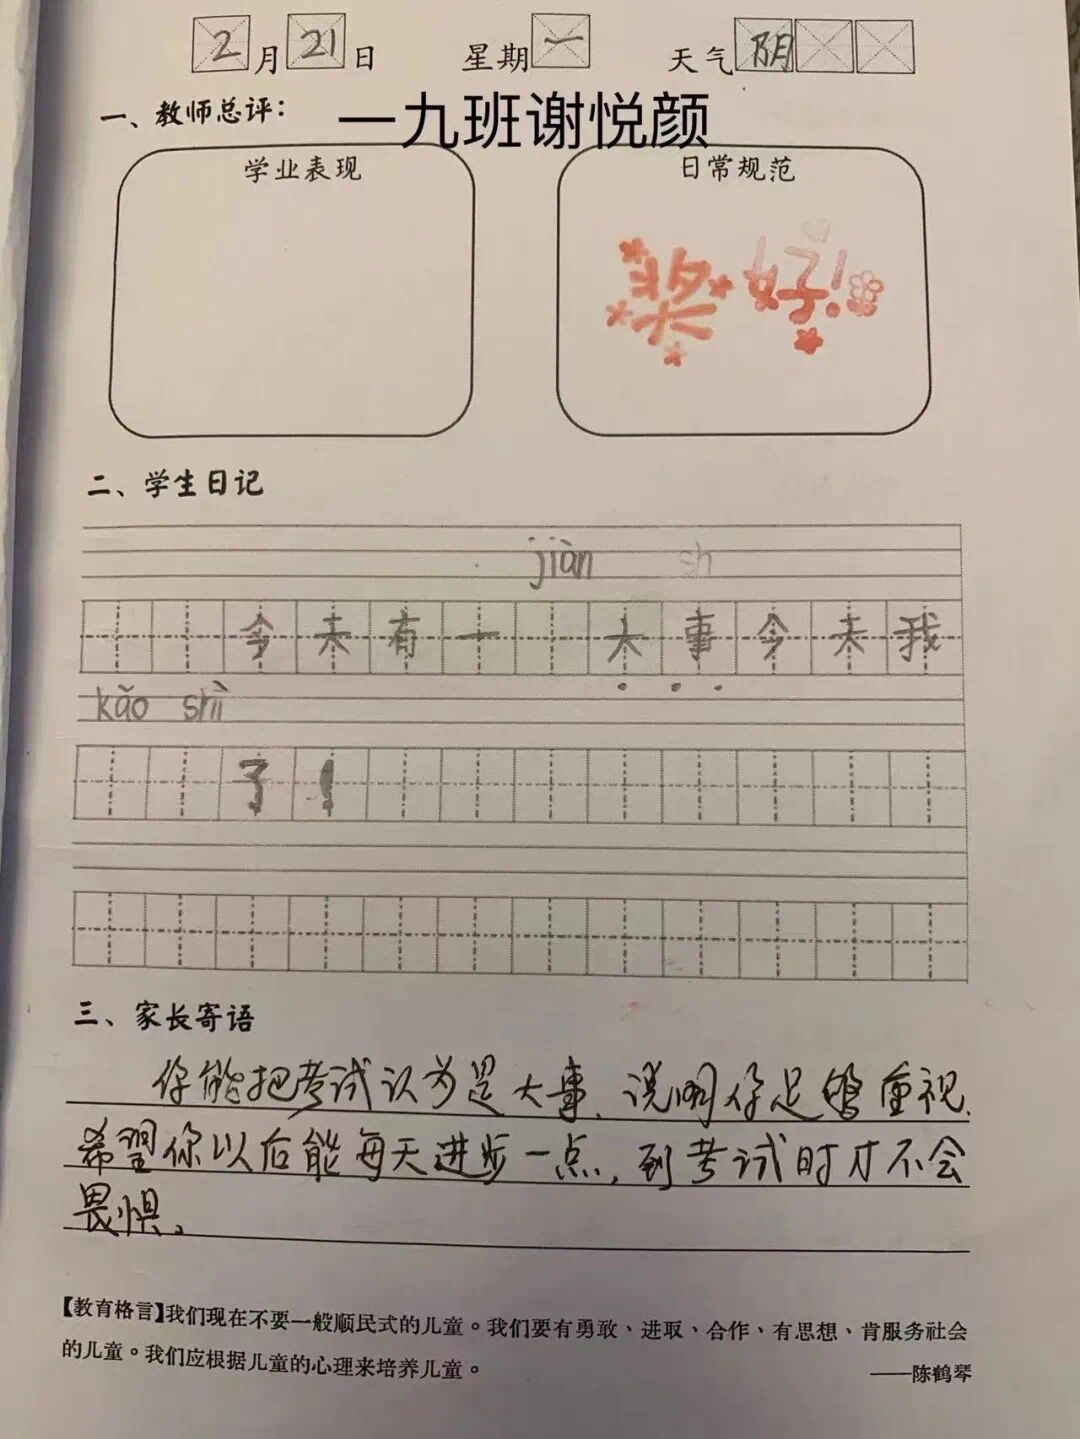 2月21日 星期一 天气阴
一、教师总评: 一九班谢悦颜
学业表现 日常规范
奖 好!
二、学生日记
jiàn sh
今天有一 大事今天我
kǎo shì
了!
三、家长寄语
你能把考试认为是大事,说明你足够重视,
希望你以后能每天进步一点,到考试时才不会
畏惧。
【教育格言】我们现在不要一般顺民式的儿童。我们要有勇敢、进取、合作、有思想、肯服务社会
的儿童。我们应根据儿童的心理来培养儿童。
——陈鹤琴